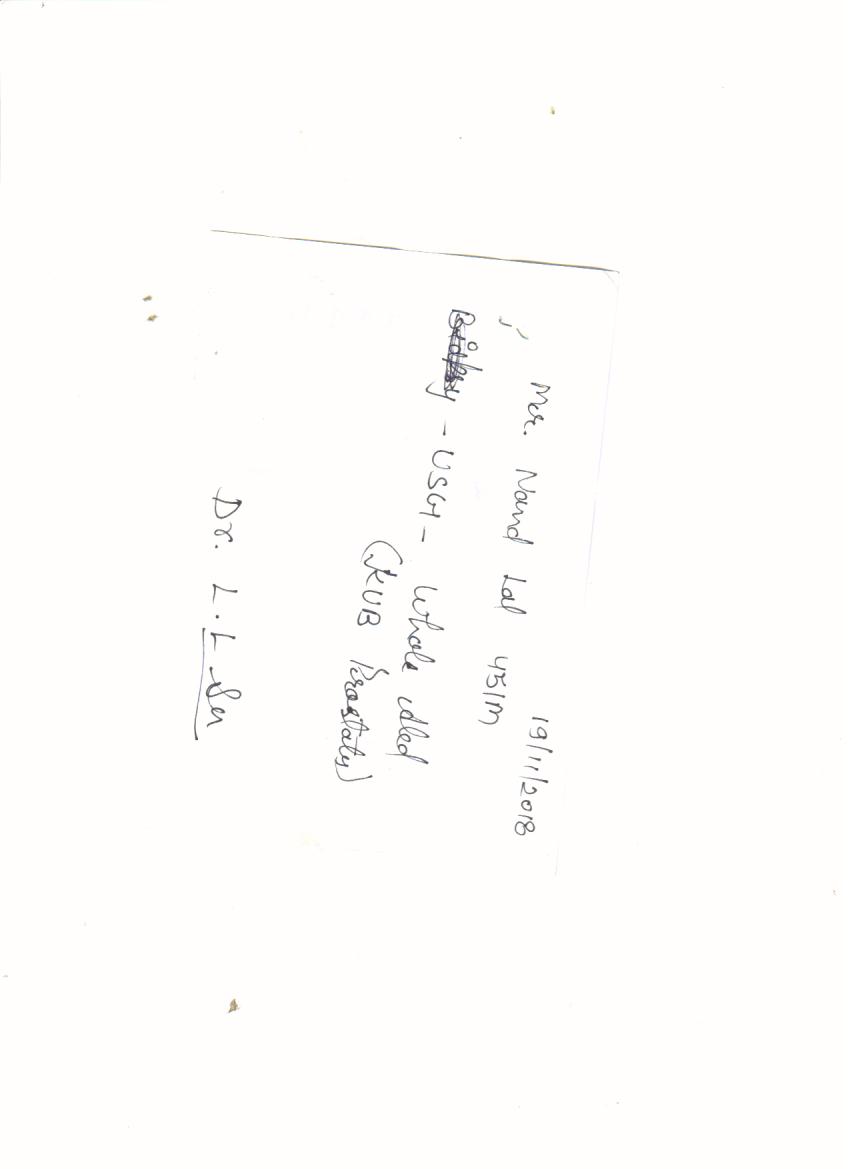 19/11/2018
Mr. Nand Lal 45/M
- USG - Whole Abd
(KUB Prostate)
Dr. L. L